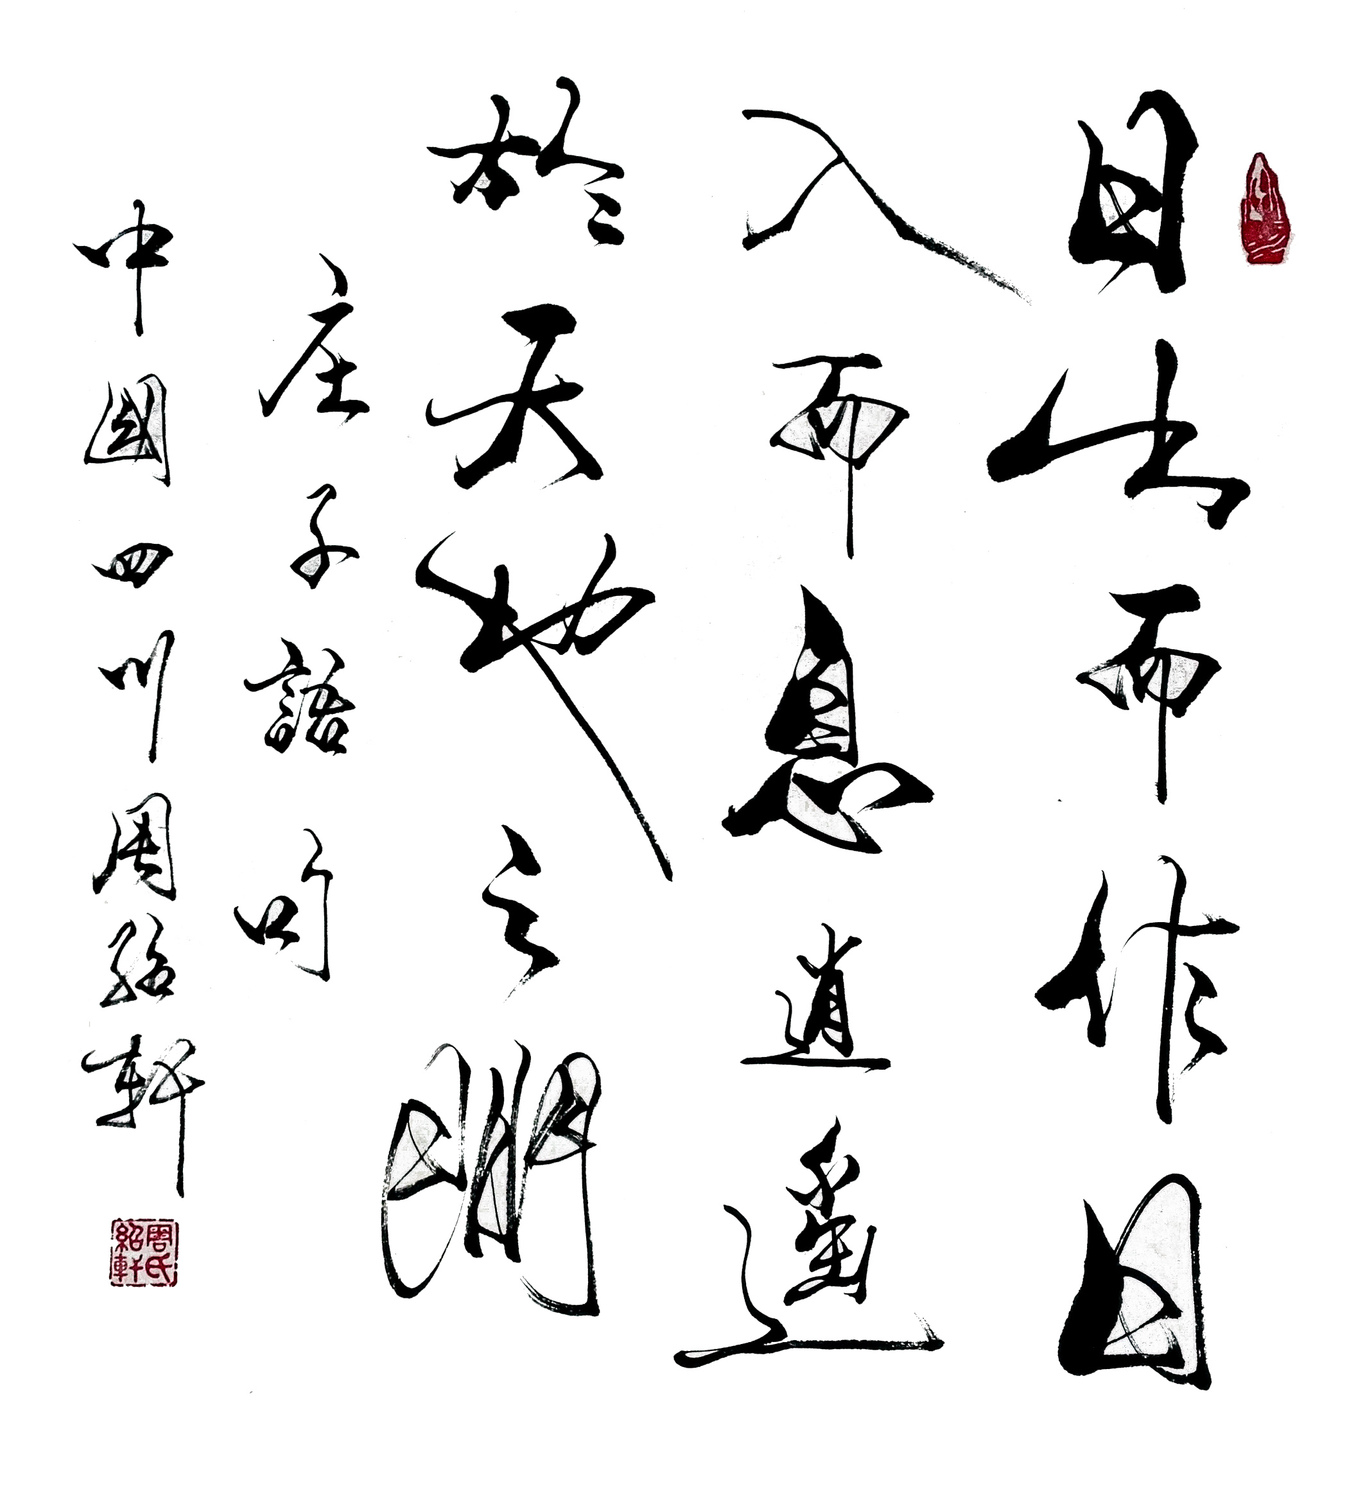 日出而作日
入而息逍遥
於天地之門
庄子語句
中國四川周紹軒
周氏紹軒